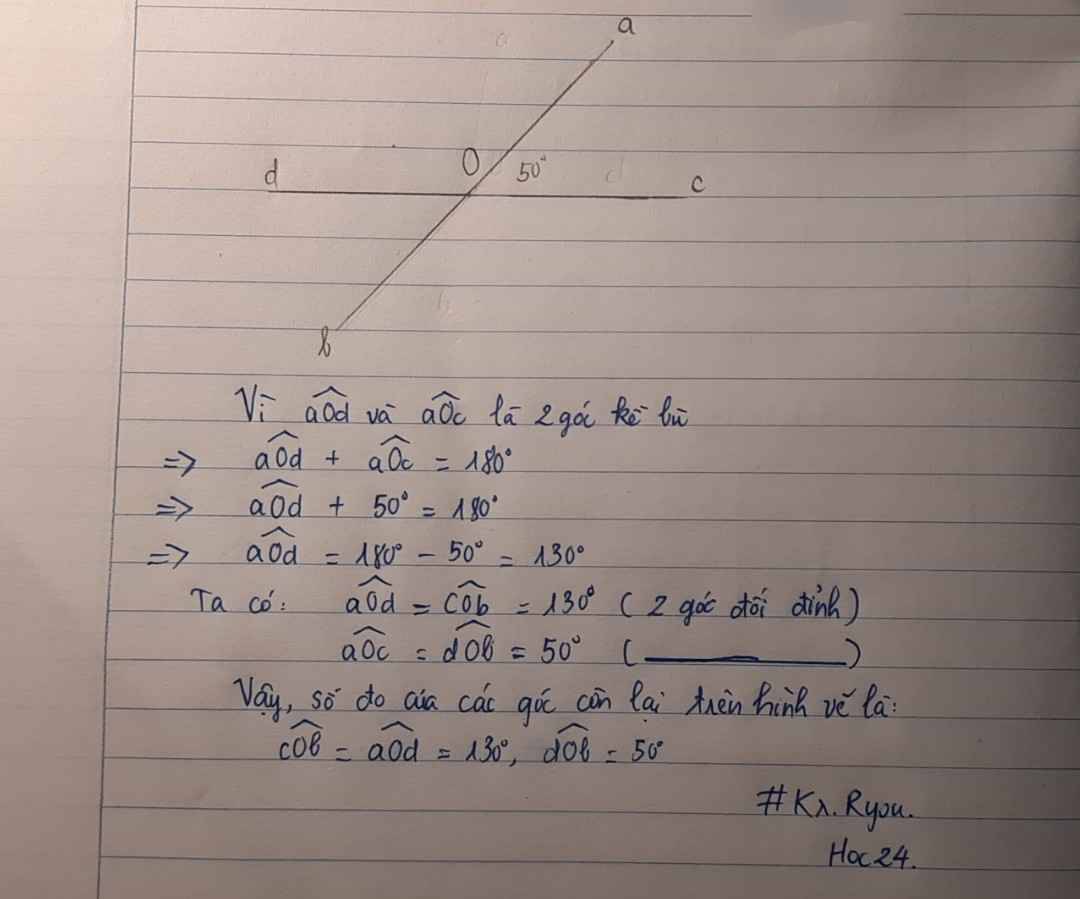 a
O 50°
d c
b
Vì aOd và aOc là 2 góc kề bù
=> aOd + aOc = 180°
=> aOd + 50° = 180°
=> aOd = 180° - 50° = 130°
Ta có: aOd = cOb = 130° ( 2 góc đối đỉnh )
aOc = dOb = 50° ( ——— )
Vậy, số đo của các góc còn lại trên hình vẽ là:
cOb = aOd = 130°, dOb = 50°
#Kλ.Ryou.
Hoc24.